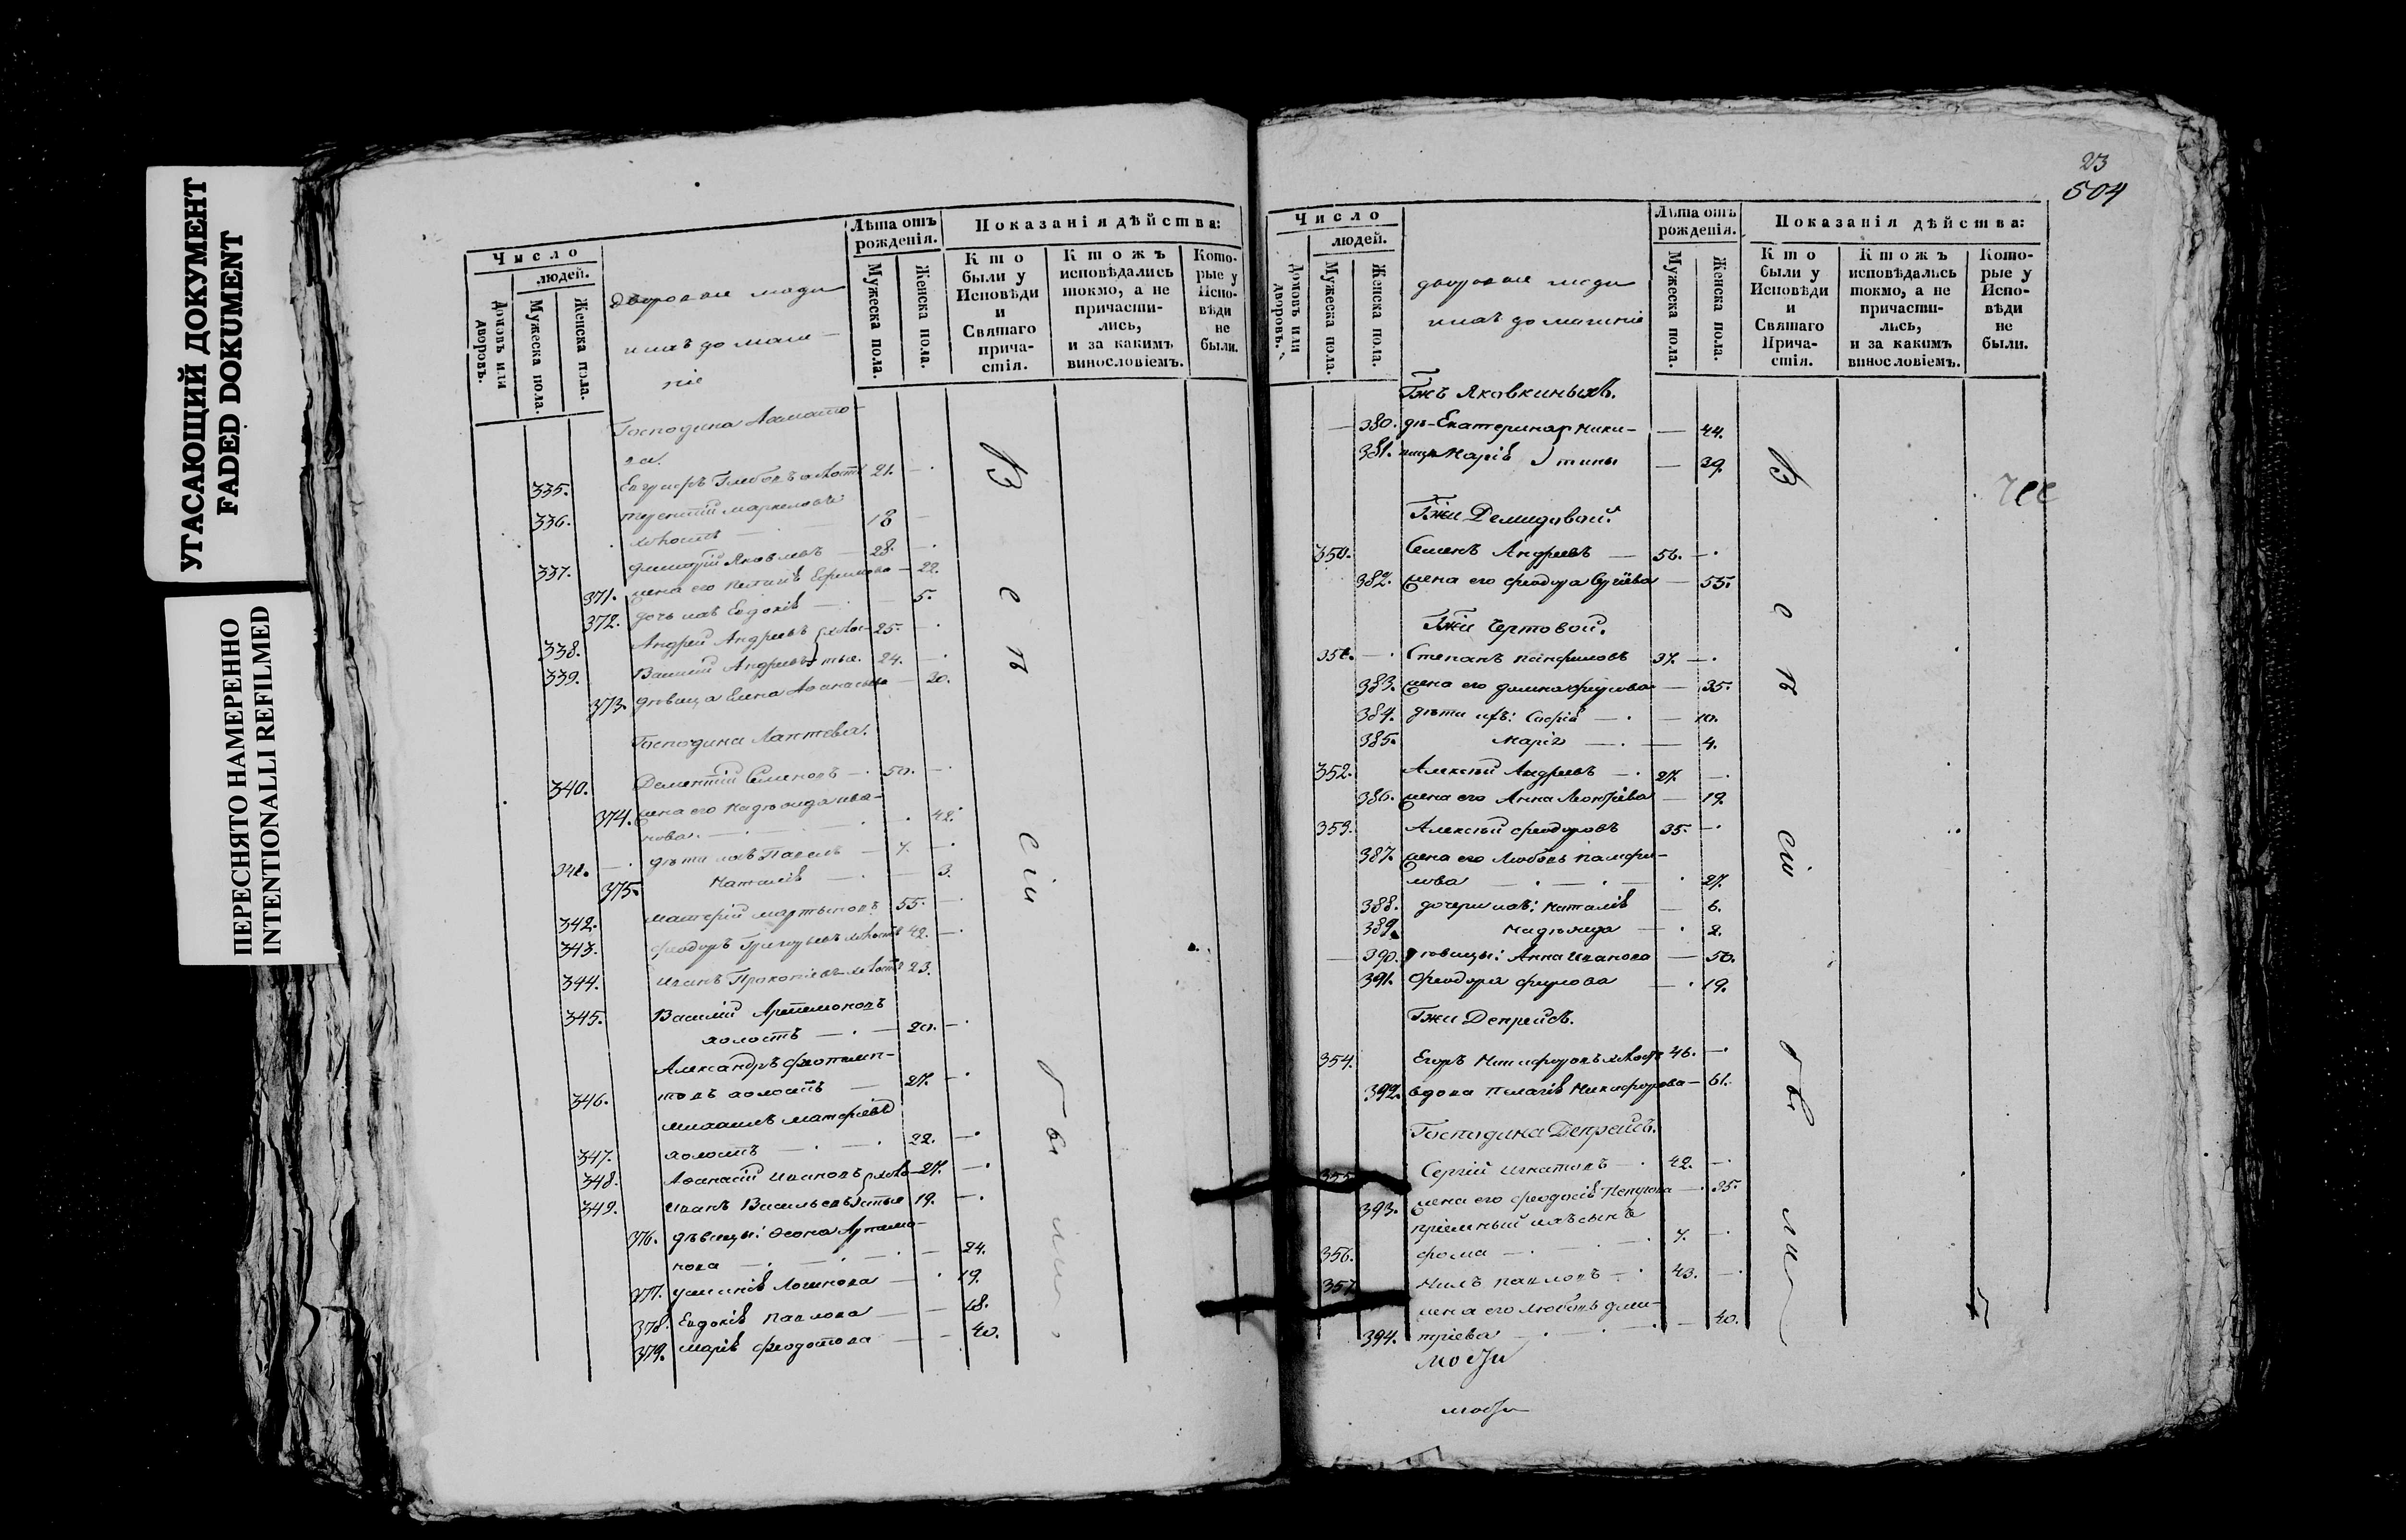 УГАСАЮЩИЙ ДОКУМЕНТ
FADED DOKUMENT
ПЕРЕСНЯТО НАМЕРЕННО
INTENTIONALLI REFILMED
Число
людей.
Домовъ или дворовъ.
Мужеска пола.
Женска пола.
дворовые люди
и ихъ домаш-
ніе
Лѣта отъ рожденія.
Мужеска пола.
Женска пола.
Показанія дѣйства:
Кто были у Исповѣди и Святаго прича-стія.
Ктожъ исповѣдались токмо, а не причасти-лись, и за какимъ винословіемъ.
Кото-рые у Испо-вѣди не были.
Господина
335. Глебовъ холостъ 21.
336. Терентій Маркеловъ
холостъ 18
337. Димитрій Яковлевъ 28.
371. жена его Ефимова 22.
372. дочь ихъ Евдокія 5.
338. Андрей Андреевъ холос- 25.
339. Василій Андреевъ тые. 24.
373. дѣвица Елена Афанасьева 20.
Господина Лаптева.
340. Дементій Семеновъ 50.
374. жена его Надежда Ива-
нова. 42.
341. дѣти ихъ Павелъ 7.
375. Наталія 3.
342. Мартыновъ 55.
343. Феодоръ Григорьевъ холостъ 42.
344. Иванъ Прокопіевъ холостъ 23.
345. Василій Артемоновъ
холостъ 20.
Александръ
346. холостъ 27.
Михаилъ
347. холостъ 22.
348. Афанасій Ивановъ холо- 27.
349. Иванъ Васильевъ стые 19.
376. дѣвицы: Артамо-
нова 24.
377. 19.
378. Евдокія Павлова 18.
379. Марія Феодотова 40.
В с п сіи бы ли
23
504
Число
людей.
Домовъ или дворовъ.
Мужеска пола.
Женска пола.
дворовые люди
и ихъ домашніе
Лѣта отъ рожденія.
Мужеска пола.
Женска пола.
Показанія дѣйства:
Кто были у Исповѣди и Святаго Прича-стія.
Ктожъ исповѣдались токмо, а не причасти-лись, и за какимъ винословіемъ.
Кото-рые у Испо-вѣди не были.
Гжъ Яковкиныхъ.
380. дѣ- Екатерина Ники- 44.
381. вицы Марія тины 39.
Гжи Демидовой.
350. Семенъ Андреевъ 56.
382. жена его Феодора Сергіева 55.
Гжи Чертовой.
351. Степанъ Панфиловъ 37.
383. жена его Домна 35.
384. дѣти ихъ: Софія 10.
385. Марія 4.
352. Алексѣй Андреевъ 27.
386. жена его Анна Леонтіева 19.
353. Алексѣй Феодоровъ 35.
387. жена его Любовь Памфи-
лова 27.
388. дочери ихъ: Наталія 6.
389. Надежда 2.
390. дѣвицы: Анна Иванова 50.
391. Феодора 19.
Гжи Депрейсъ.
354. Егоръ Никифоровъ холостъ 46.
392. вдова Пелагія Никифорова 61.
Господина Депрейсъ.
355. Сергій Игнатовъ 42.
393. жена его Феодосія Петрова 35.
пріемный ихъ сынъ
356. Фома 7.
357. Нилъ Павловъ 43.
жена его Любовь Дми-
394. тріева 40.
В с п сіи бы ли